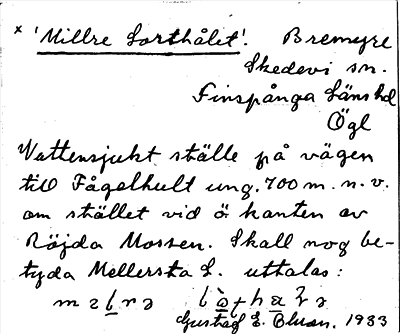 × 'Millre Lorthålet'. Bremyre
Skedevi sn.
Finspånga Länshd
Ögl
Vattensjukt ställe på vägen
till Fågelhult ung. 700 m. n. v.
om stället vid ö kanten av
Röjda Mossen. Skall nog be-
tyda Mellersta L. uttalas:
Gustaf E. Olson. 1933